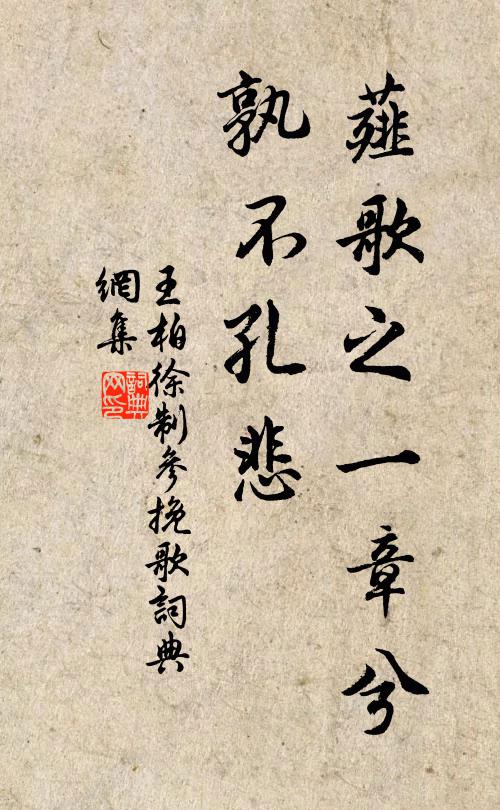 薤歌之一章兮
孰不孔悲
王柏徐制參挽歌詞典
網集
詞典網印